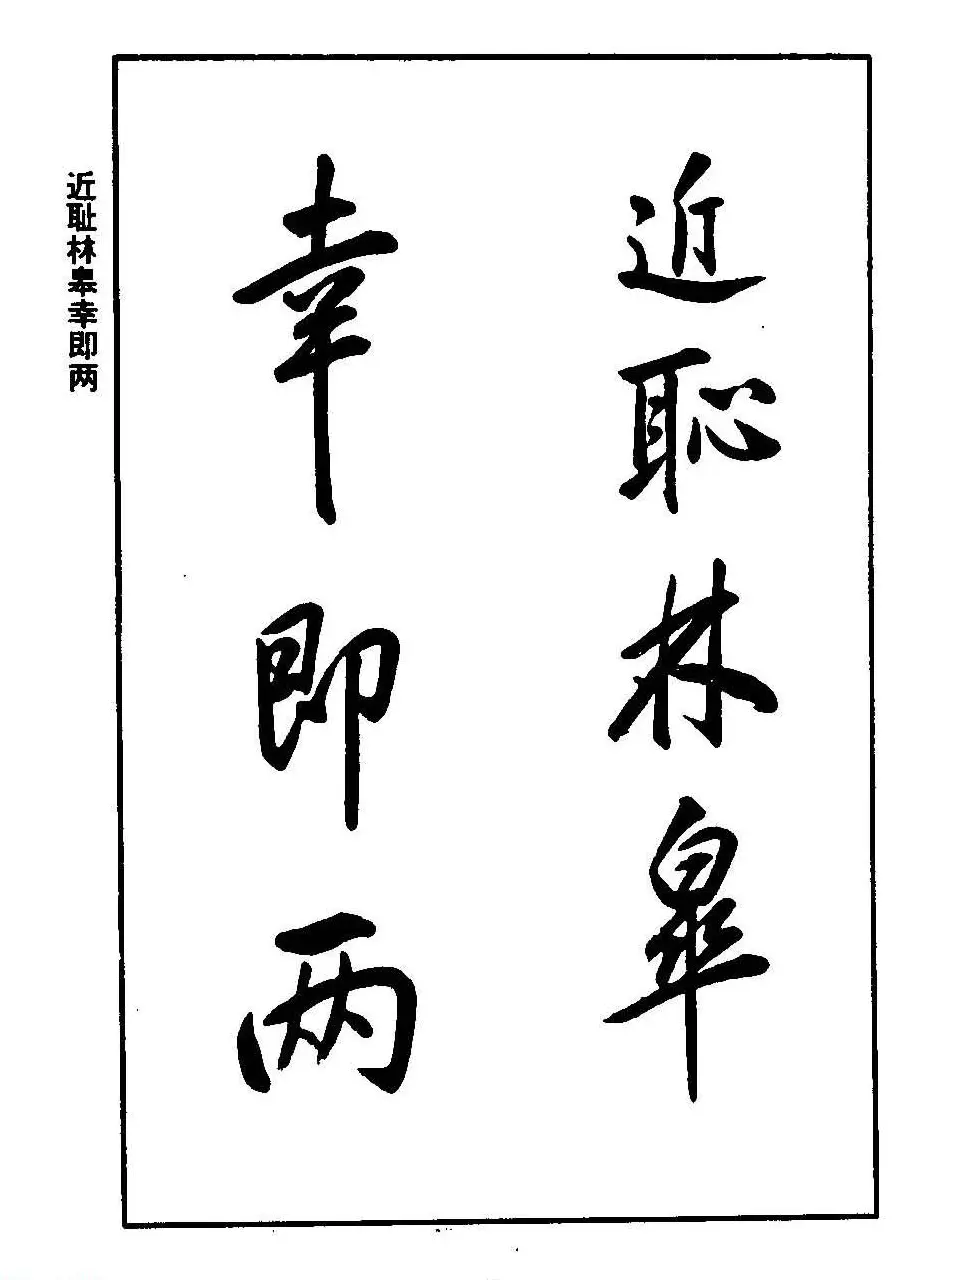 近恥林皋
幸即两
近耻林皋幸即两